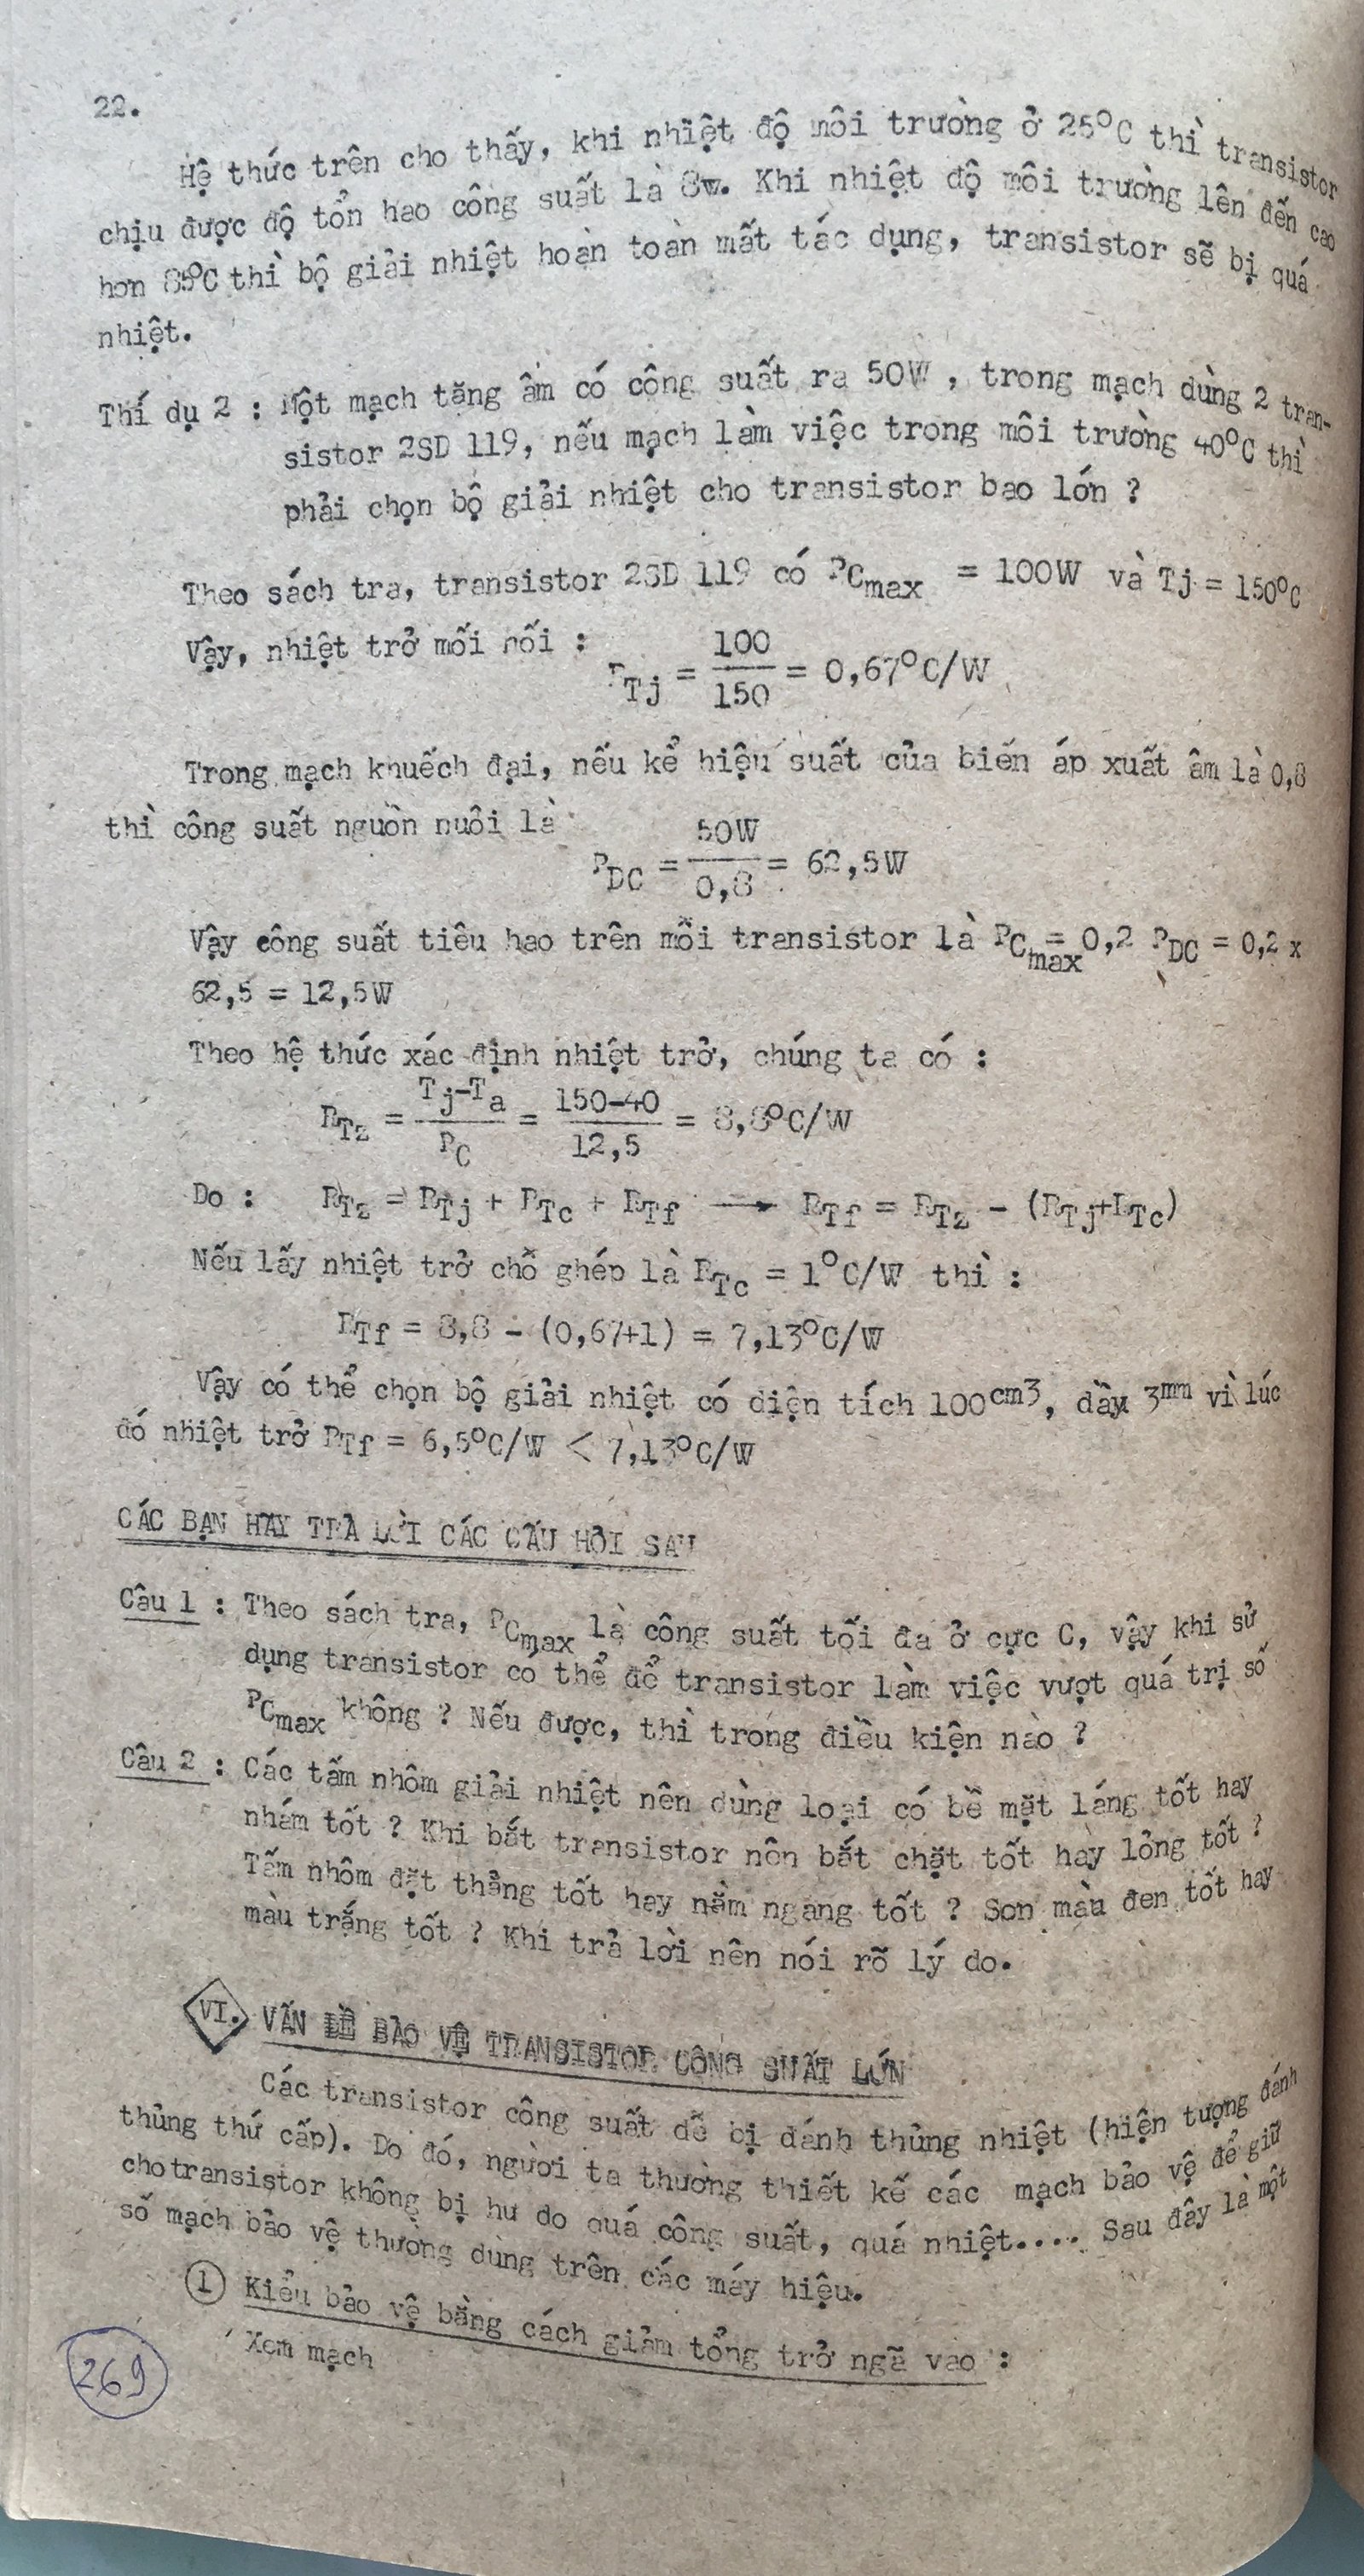 22.
Hệ thức trên cho thấy, khi nhiệt độ môi trường ở 25°C thì transistor
chịu được độ tổn hao công suất là 8w. Khi nhiệt độ môi trường lên đến cao
hơn 85°C thì bộ giải nhiệt hoàn toàn mất tác dụng, transistor sẽ bị quá
nhiệt.
Thí dụ 2 : Một mạch tăng âm có công suất ra 50W , trong mạch dùng 2 tran-
sistor 2SD 119, nếu mạch làm việc trong môi trường 40°C thì
phải chọn bộ giải nhiệt cho transistor bao lớn ?
Theo sách tra, transistor 2SD 119 có PCmax = 100W và Tj = 150°C
Vậy, nhiệt trở mối nối : RTj = 100/150 = 0,67°C/W
Trong mạch khuếch đại, nếu kể hiệu suất của biến áp xuất âm là 0,8
thì công suất nguồn nuôi là
PDC = 50W/0,8 = 62,5W
Vậy công suất tiêu hao trên mỗi transistor là PCmax = 0,2 PDC = 0,2 x
62,5 = 12,5W
Theo hệ thức xác định nhiệt trở, chúng ta có :
RTz = Tj-Ta/PC = 150-40/12,5 = 8,8°C/W
Do : RTz = RTj + RTc + RTf → RTf = RTz - (RTj+RTc)
Nếu lấy nhiệt trở chỗ ghép là RTc = 1°C/W thì :
RTf = 8,8 - (0,67+1) = 7,13°C/W
Vậy có thể chọn bộ giải nhiệt có diện tích 100cm3, dầy 3mm vì lúc
đó nhiệt trở RTf = 6,5°C/W < 7,13°C/W
CÁC BẠN HÃY TRẢ LỜI CÁC CÂU HỎI SAU
Câu 1 : Theo sách tra, PCmax là công suất tối đa ở cực C, vậy khi sử
dụng transistor có thể để transistor làm việc vượt quá trị số
PCmax không ? Nếu được, thì trong điều kiện nào ?
Câu 2 : Các tấm nhôm giải nhiệt nên dùng loại có bề mặt láng tốt hay
nhám tốt ? Khi bắt transistor nên bắt chặt tốt hay lỏng tốt ?
Tấm nhôm đặt thẳng tốt hay nằm ngang tốt ? Sơn màu đen tốt hay
màu trắng tốt ? Khi trả lời nên nói rõ lý do.
VI. VẤN ĐỀ BẢO VỆ TRANSISTOR CÔNG SUẤT LỚN
Các transistor công suất dễ bị đánh thủng nhiệt (hiện tượng đánh
thủng thứ cấp). Do đó, người ta thường thiết kế các mạch bảo vệ để giữ
cho transistor không bị hư do quá công suất, quá nhiệt.... Sau đây là một
số mạch bảo vệ thường dùng trên các máy hiệu.
1 Kiểu bảo vệ bằng cách giảm tổng trở ngã vào :
Xem mạch
269